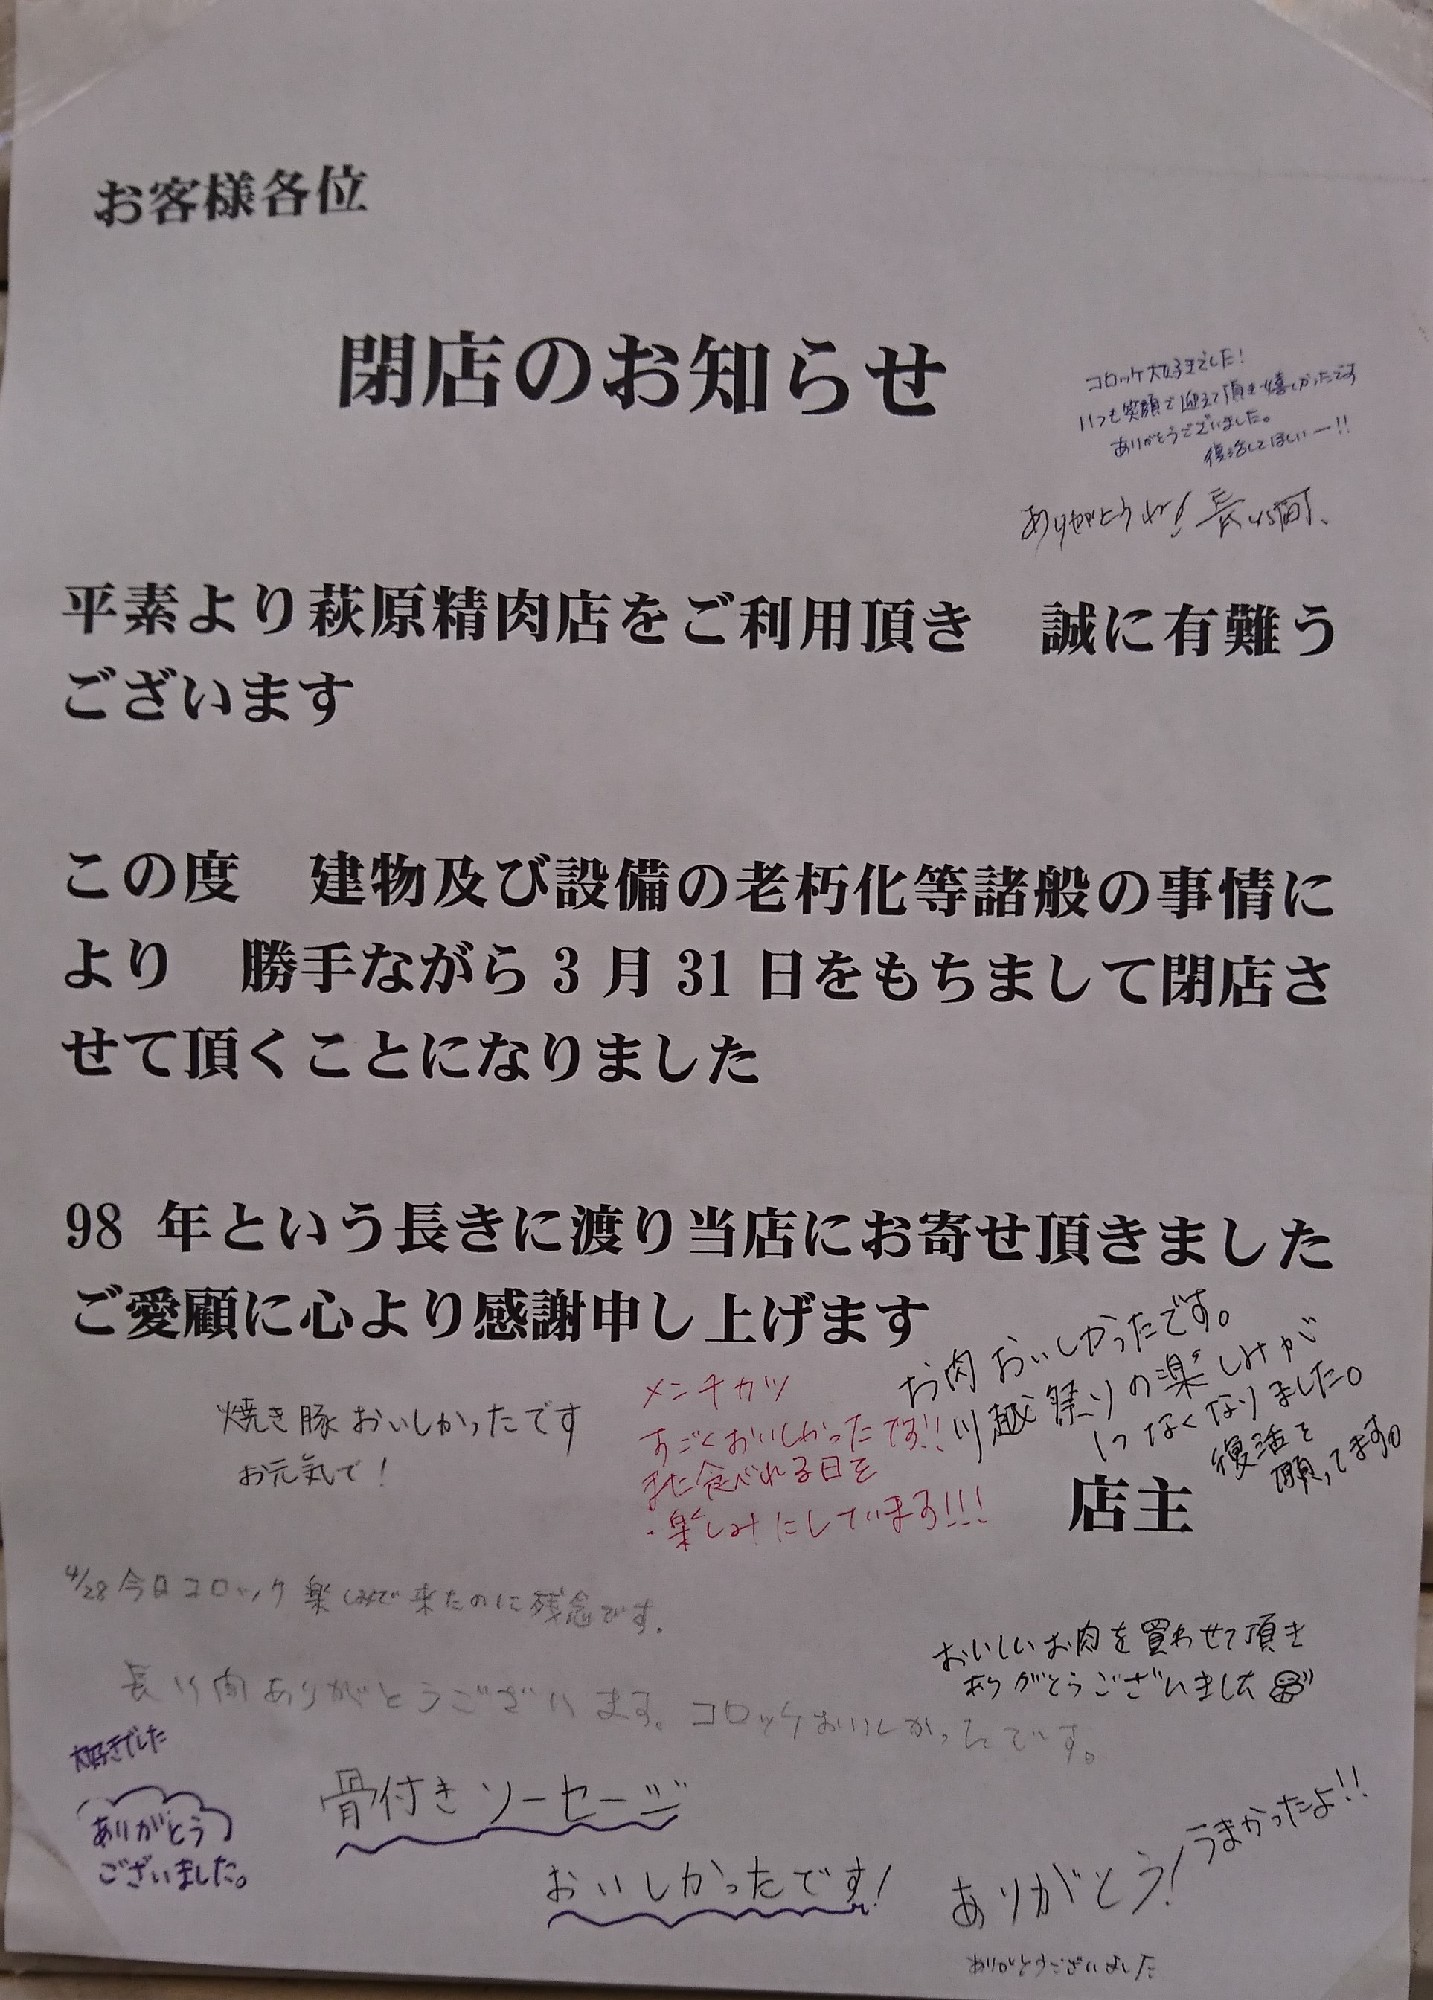 お客様各位
閉店のお知らせ
コロッケ大好きでした!
いつも笑顔で迎えて頂き嬉しかったです
ありがとうございました。
復活してほしいー!!
ありがとうね!長い間、
平素より萩原精肉店をご利用頂き　誠に有難う
ございます
この度　建物及び設備の老朽化等諸般の事情に
より　勝手ながら3月31日をもちまして閉店さ
せて頂くことになりました
98 年という長きに渡り当店にお寄せ頂きました
ご愛顧に心より感謝申し上げます
お肉おいしかったです。
川越祭りの楽しみが
1つなくなりました。
復活を
願ってます。
メンチカツ
すごくおいしかったです!!
また食べれる日を
楽しみにしています!!!
焼き豚おいしかったです
お元気で!
店主
4/28 今日コロッケ楽しみで来たのに残念です。
おいしいお肉を買わせて頂き
ありがとうございました
長い間ありがとうございます。コロッケおいしかったです。
大好きでした
ありがとう
ございました。
骨付きソーセージ
おいしかったです!
ありがとう!うまかったよ!!
ありがとうございました